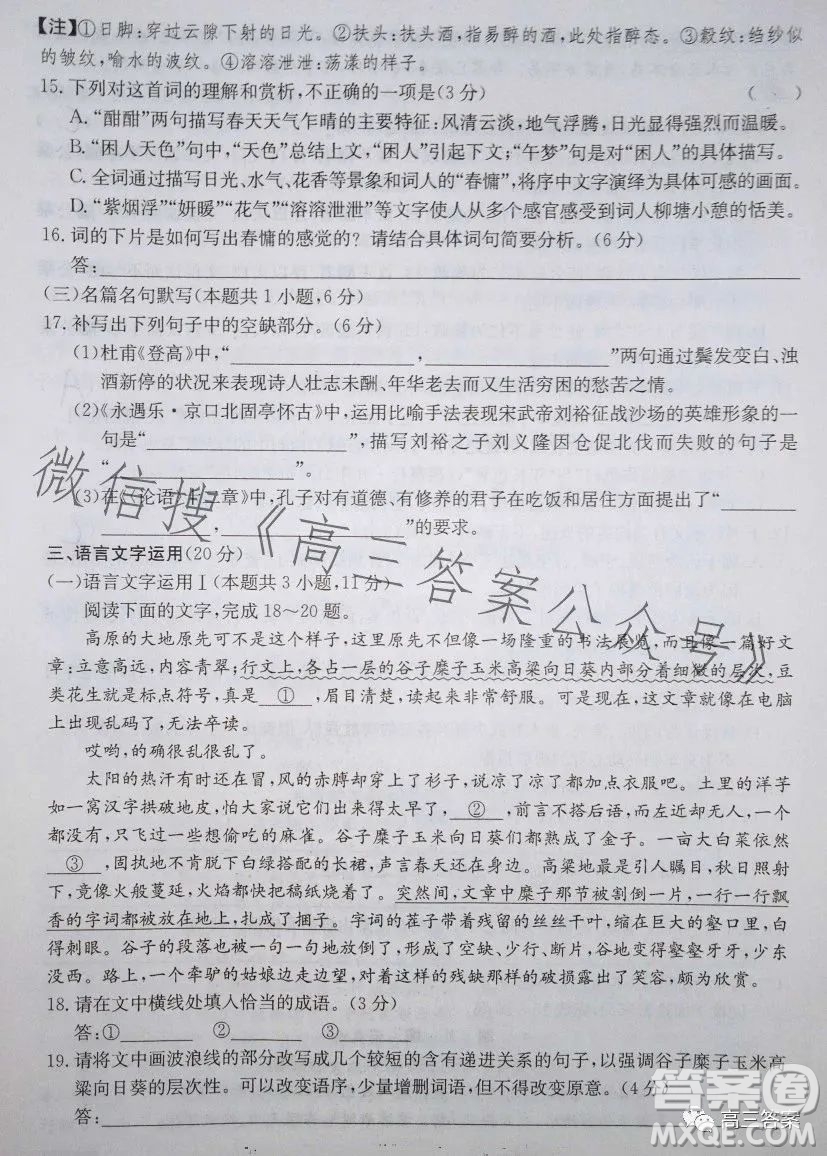 【注】①日脚:穿过云隙下射的日光。②扶头:扶头酒,指易醉的酒,此处指醉态。③縠纹:绉纱似
的皱纹,喻水的波纹。④溶溶泄泄:荡漾的样子。
15.下列对这首词的理解和赏析,不正确的一项是(3分) ( )
A.“酣酣”两句描写春天天气乍晴的主要特征:风清云淡,地气浮腾,日光显得强烈而温暖。
B.“困人天色”句中,“天色”总结上文,“困人”引起下文;“午梦”句是对“困人”的具体描写。
C.全词通过描写日光、水气、花香等景象和词人的“春慵”,将序中文字演绎为具体可感的画面。
D.“紫烟浮”“妍暖”“花气”“溶溶泄泄”等文字使人从多个感官感受到词人柳塘小憩的恬美。
16.词的下片是如何写出春慵的感觉的?请结合具体词句简要分析。(6分)
答:
(三)名篇名句默写(本题共1小题,6分)
17.补写出下列句子中的空缺部分。(6分)
(1)杜甫《登高》中,“________,________”两句通过鬓发变白、浊
酒新停的状况来表现诗人壮志未酬、年华老去又生活穷困的愁苦之情。
(2)《永遇乐·京口北固亭怀古》中,运用比喻手法表现宋武帝刘裕征战沙场的英雄形象的一
句是“________”,描写刘裕之子刘义隆因仓促北伐而失败的句子是
“________”。
(3)在《〈论语〉十二章》中,孔子对有道德、有修养的君子在吃饭和居住方面提出了“________
________,________”的要求。
三、语言文字运用(20分)
(一)语言文字运用Ⅰ(本题共3小题,11分)
阅读下面的文字,完成18~20题。
高原的大地原先可不是这个样子,这里原先不但像一场隆重的书法展览,而且像一篇好文
章:立意高远,内容青翠;行文上,各占一层的谷子糜子玉米高粱向日葵内部分着细微的层次,豆
类花生就是标点符号,真是 ① ,眉目清楚,读起来非常舒服。可现在,这文章就像在电脑
上出现乱码了,无法卒读。
哎哟,的确很乱很乱了。
太阳的热汗有时还在冒,风的赤脚却穿上了衫子,说凉了凉了都加点衣服吧。土里的洋芋
如一窝汉字拱破地皮,怕大家说它们出来得太早了, ② ,前言不搭后语,但已无可更改,一个
都没有少,只飞过一些想偷吃的麻雀。谷子糜子玉米向日葵们都成熟成了金子。一亩大菜花
③ ,固执地不肯脱下白绿搭配的长裙,卖弄着春天还在身上。高粱地最引人瞩目,秋日照射
下,竟像火舰般蔓延,火焰都快把稿纸烧着了。突然间,文章中糜子那节被割倒一片,一行一行飘
香的字词都被放在地上,扎成了捆子。字词的茬子带着残留的丝丝干叶,缩在巨大的壑口里,白
得刺眼。谷子的段落也被一句一句地放倒了,形成了空缺、少行、断片,谷地变得壑壑牙牙,少东
没西。路上,一个牵驴的姑娘边走边看着那新的破损露出了笑容,颇为欣赏。
18.请在文中横线处填入恰当的成语。(3分)
答:①________ ②________ ③________
19.请将文中画波浪线的部分改写成几个较短的含有递进关系的句子,以强调谷子糜子玉米高
粱向日葵的层次性。可以改变语序,少量增删词语,但不得改变原意。(4分)
答:
微信搜《高三答案公众号》
答案圈
MXQE.COM
高三答案